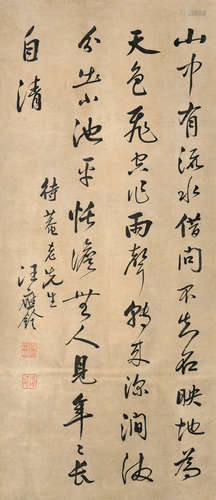 山中有流水借問不知名映地為
天色飛空作雨聲轉來深澗滿
分出小池平恬澹無人見年〻長
自清
待菴老先生
汪應銓